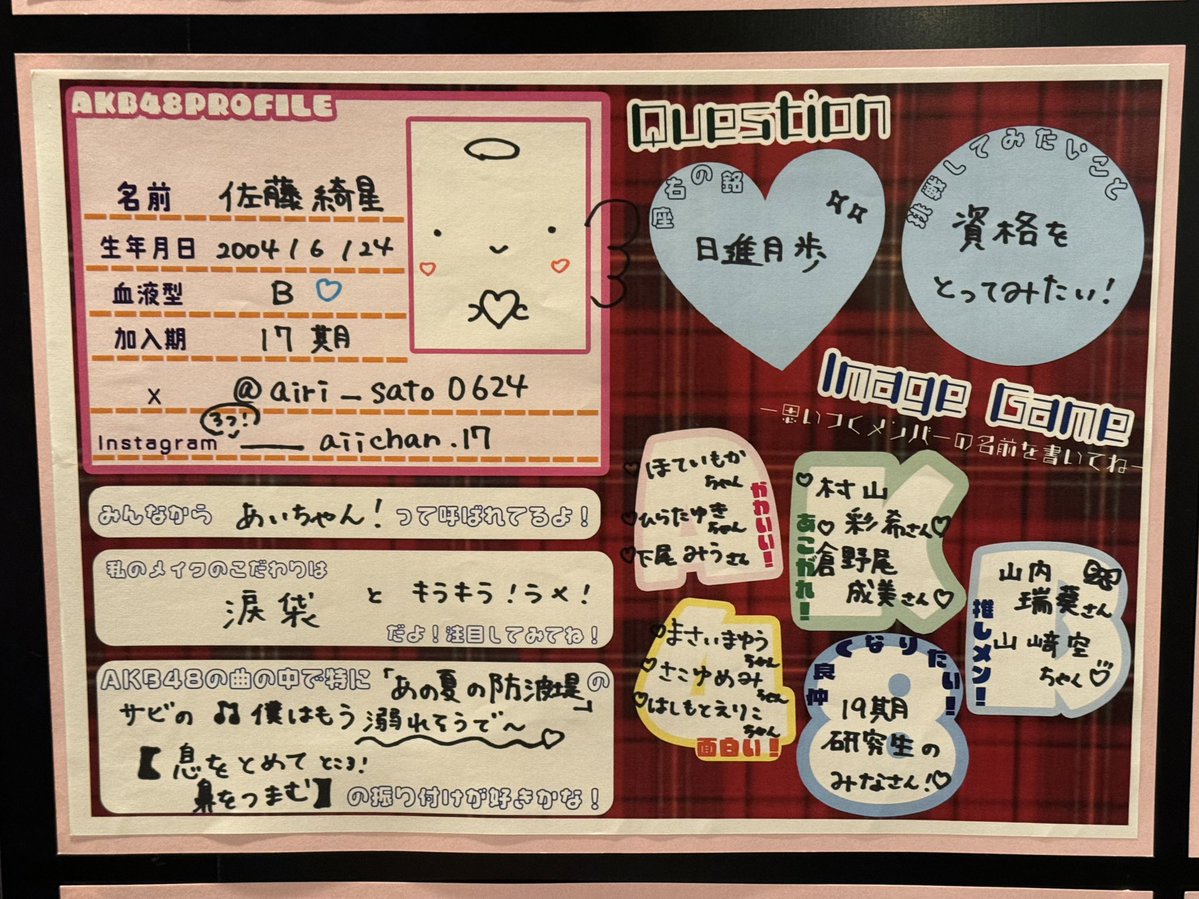 AKB48PROFILE
名前 佐藤綺星
生年月日 2004/6/24
血液型 B
加入期 17期
X @airi_sato0624
3つ!
Instagram ___aiichan.17
みんなから あいちゃん! って呼ばれてるよ!
私のメイクのこだわりは
涙袋 と キラキラ!ラメ!
だよ!注目してみてね!
AKB48の曲の中で特に「あの夏の防波堤」の
サビの ♫僕はもう溺れそうで〜
【息をとめてところ!
鼻をつまむ】の振り付けが好きかな!
Question
座右の銘
日進月歩
挑戦してみたいこと
資格を
とってみたい!
Image Game
ー思いつくメンバーの名前を書いてねー
かわいい!
ほていもか
ちゃん
ひらたゆき
ちゃん
下尾みうさん
あこがれ!
村山
彩希さん
倉野尾
成美さん
推しメン!
山内
瑞葵さん
山﨑空
ちゃん
面白い!
まさいまゆう
ちゃん
さこゆめみ
ちゃん
はしもとえりこ
ちゃん
仲良くなりたい!
19期
研究生の
みなさん!